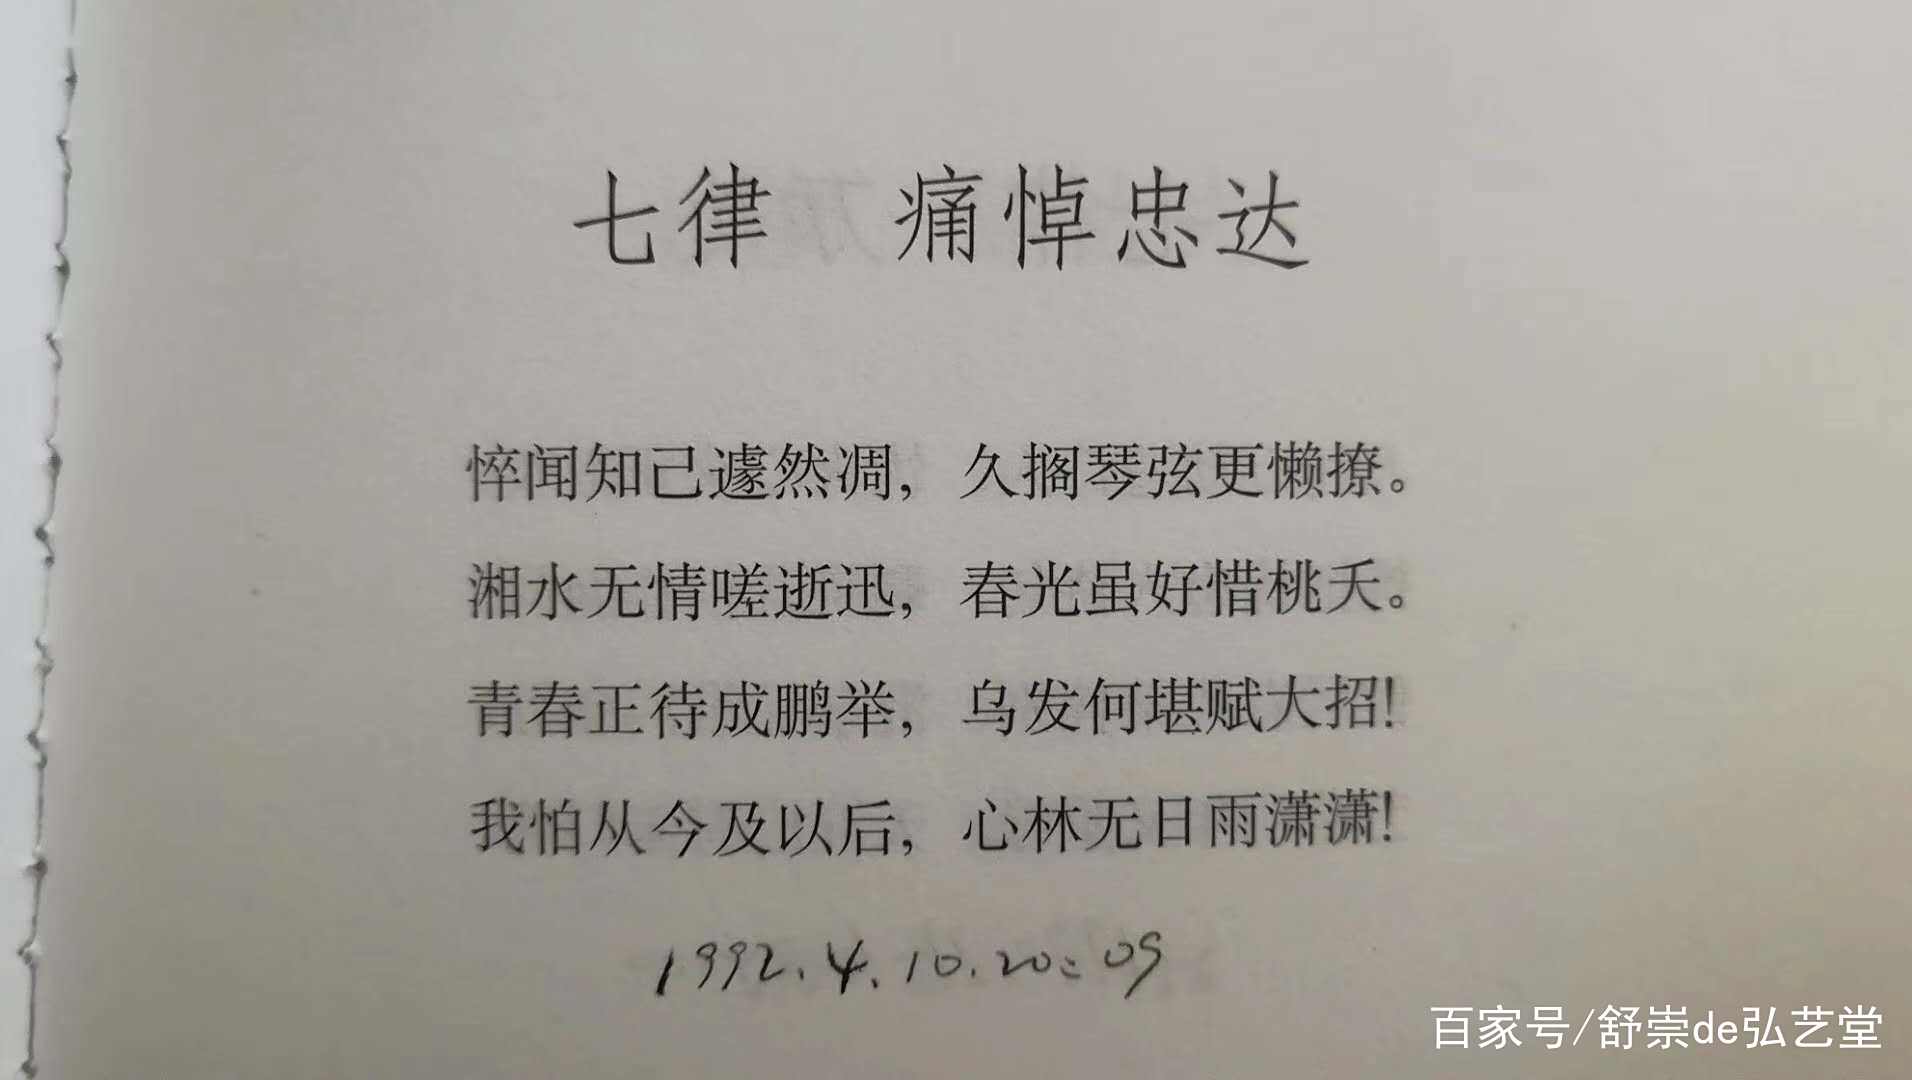 七律 痛悼忠达
悴闻知己遽然凋，久搁琴弦更懒撩。
湘水无情嗟逝迅，春光虽好惜桃夭。
青春正待成鹏举，乌发何堪赋大招！
我怕从今及以后，心林无日雨潇潇！
1992.4.10.20:09
百家号/舒崇de弘艺堂